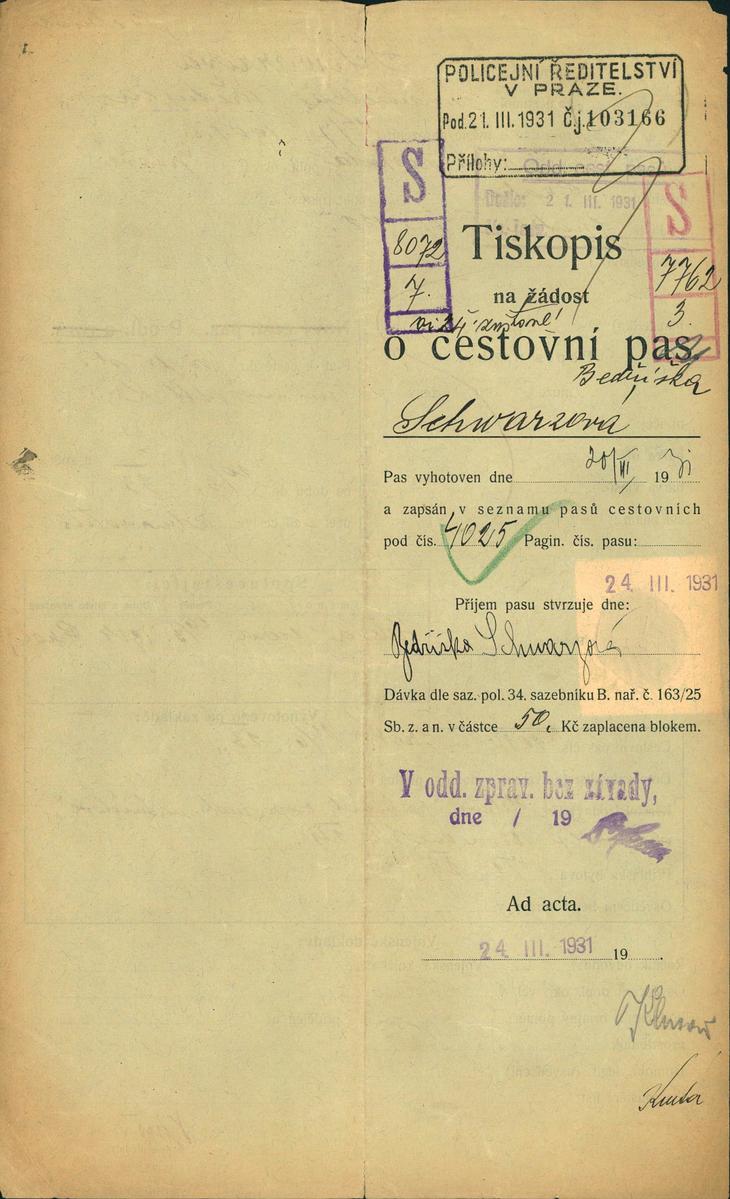 POLICEJNÍ ŘEDITELSTVÍ
V PRAZE.
Pod. 21. III. 1931 Č.j. 103166
Přílohy:
Odd. cest. pasů
Došlo: 21. III. 1931
S
8072
7.
S
7762
3.
Tiskopis
na žádost
o cestovní pas
Bedřiška
Schwarzová
Pas vyhotoven dne 20/III 1931
a zapsán v seznamu pasů cestovních
pod čís. 4025 Pagin. čís. pasu:
24. III. 1931
Příjem pasu stvrzuje dne:
Bedřiška Schwarzová
Dávka dle saz. pol. 34. sazebníku B. nař. č. 163/25
Sb. z. a n. v částce 50. Kč zaplacena blokem.
V odd. zprav. bez závady,
dne / 19
Ad acta.
24. III. 1931 19